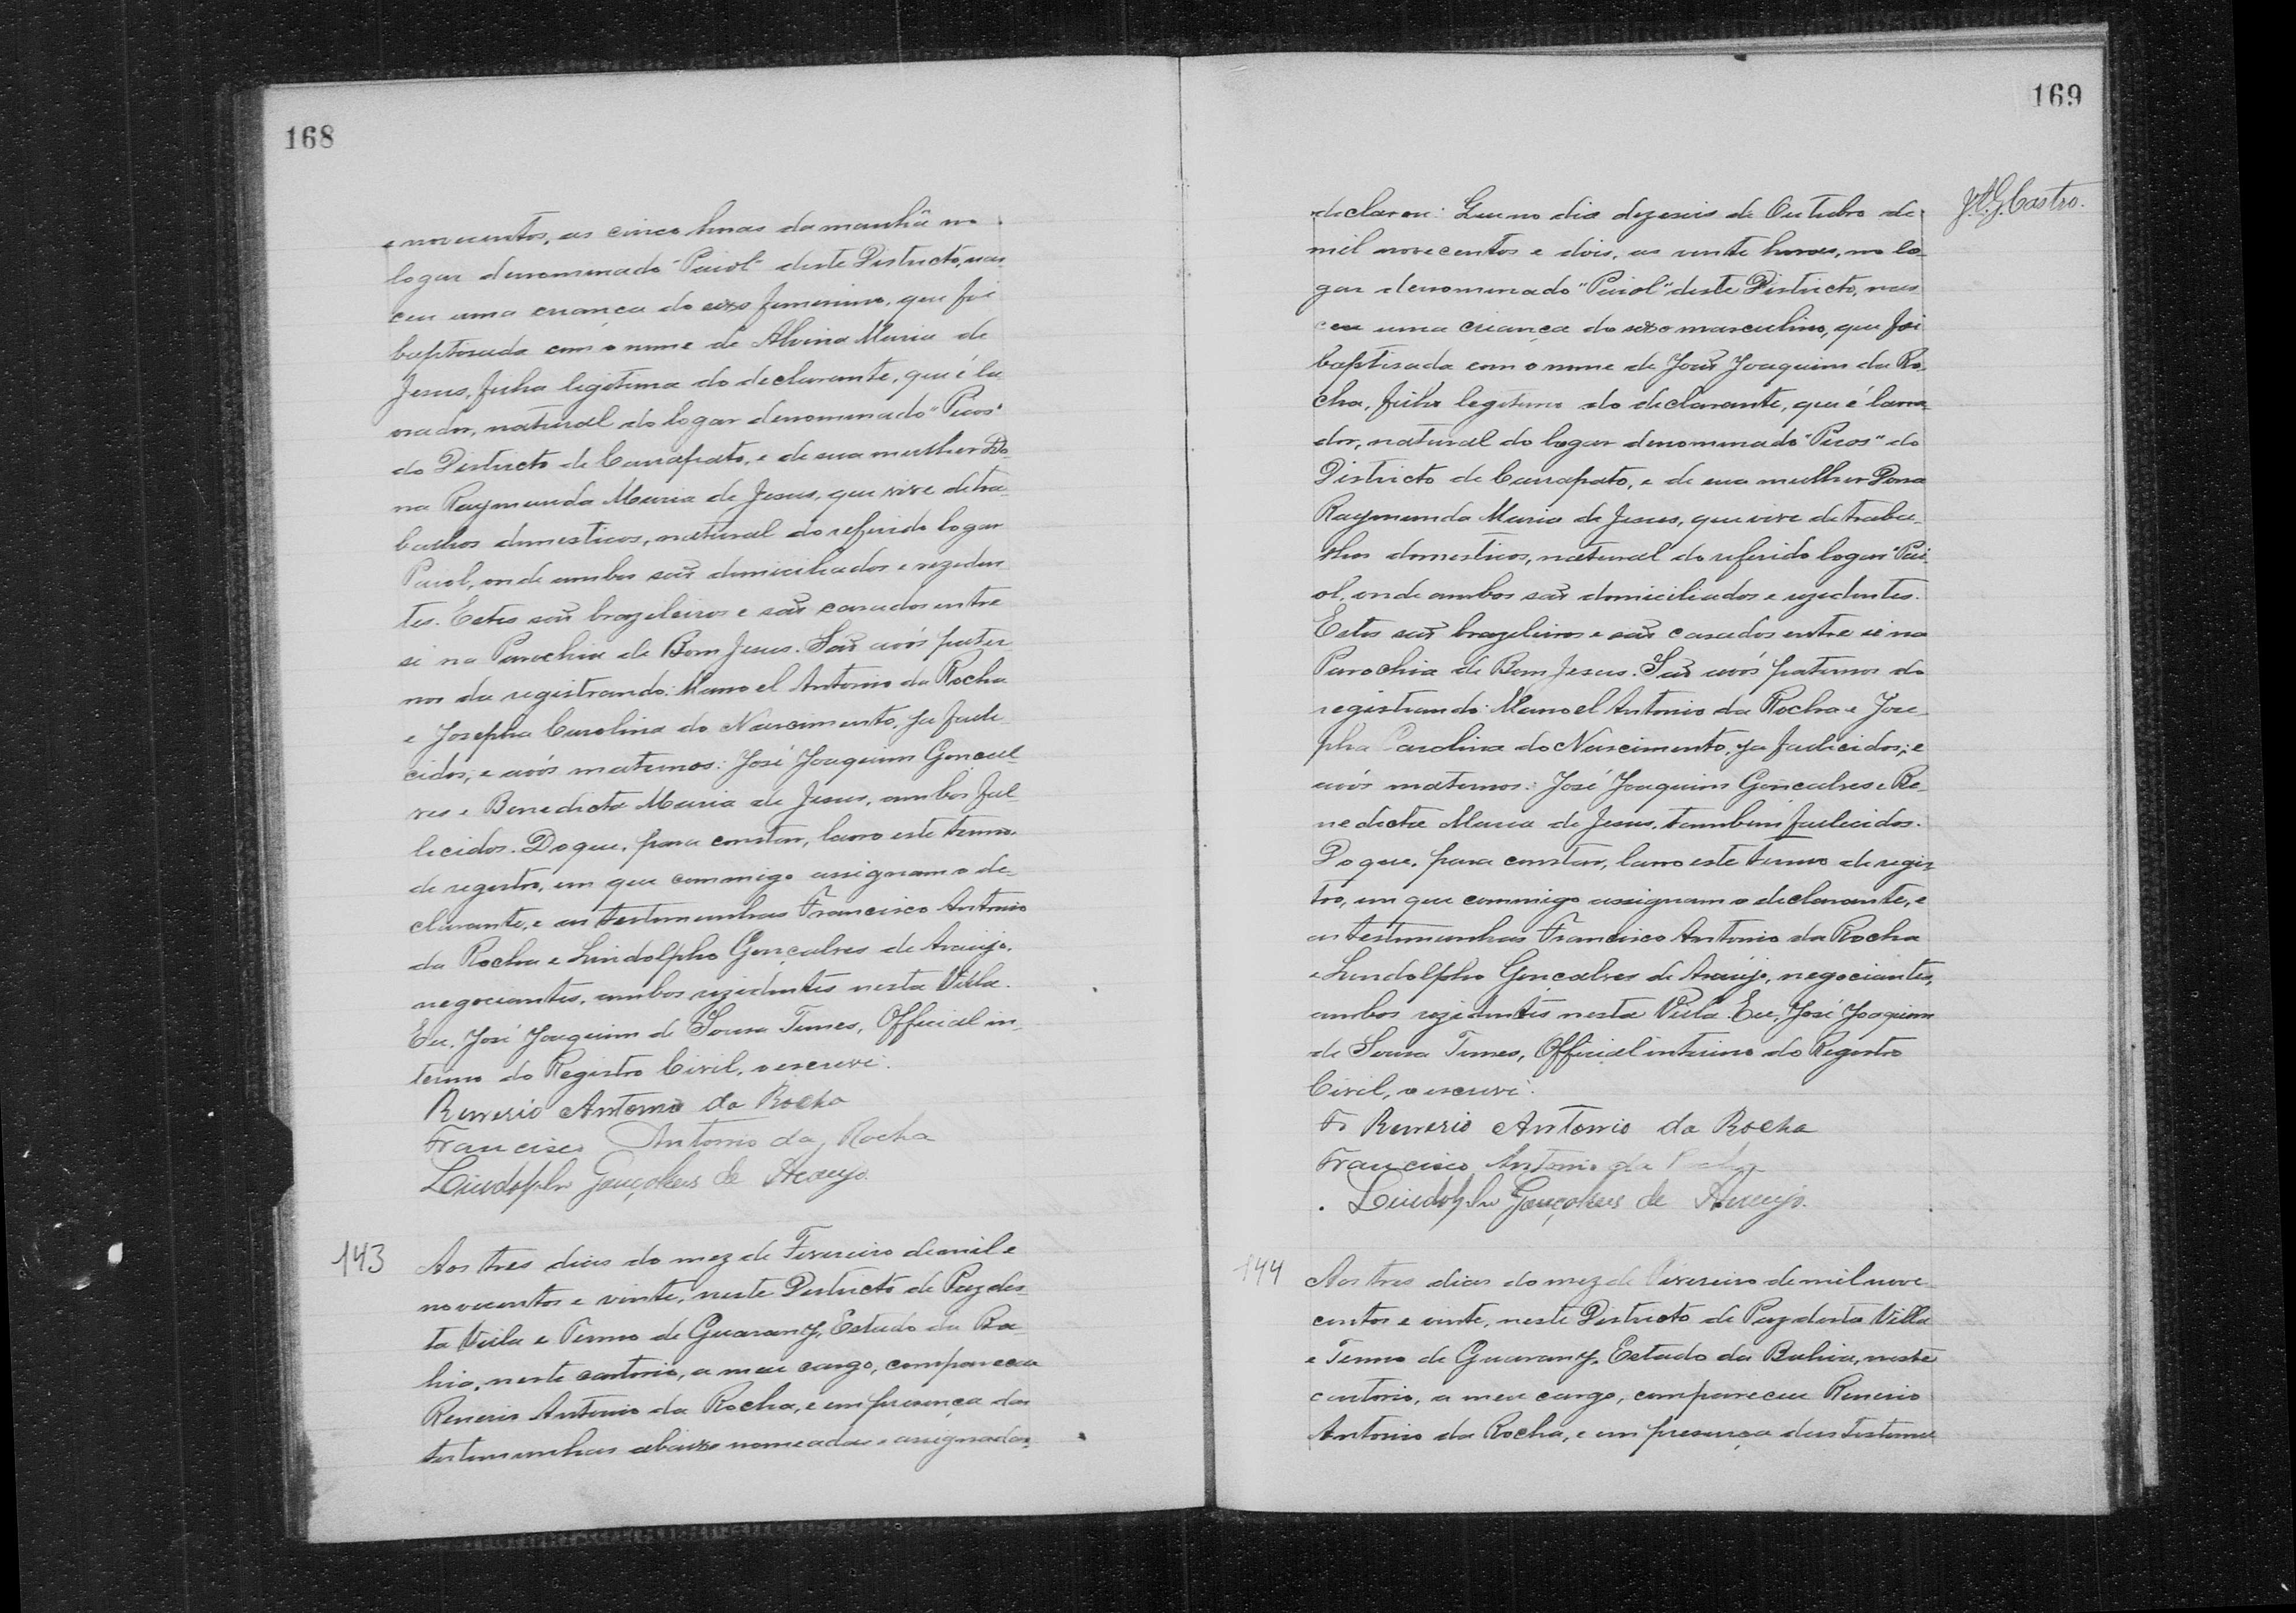 168
e novecentos, as cinco horas da manhã no
logar denominado "Paiol" deste Districto, nas
ceu uma criança do sexo femenino, que foi
baptisada com o nome de Alvina Maria de
Jesus, filha legitima do declarante, que é la
vrador, natural do logar denominado "Picos"
do Districto de Carrapato, e de sua mulher Do
na Raymunda Maria de Jesus, que vive de tra
balhos domesticos, natural do referido logar
Paiol, onde ambos são domiciliados e rezeden
tes. Estes são brazileiros e são casados entre
si na Parochia de Bom Jesus. São avós pater
nos da registrando: Manoel Antonio da Rocha
e Josepha Carolina do Nascimento, ja fale
cidos; e avós maternos: José Joaquim Goncal
ves e Benedicta Maria de Jesus, ambos fal
lecidos. Do que, para constar, lavro este termo
de registro, em que commigo assignam o de
clarante, e as testemunhas Francisco Antonio
da Rocha e Lindolpho Gonçalves de Araujo,
negociantes, ambos rezidentes nesta Villa.
Eu, José Joaquim de Sousa Tunes, Official in
terino do Registro Civil, o escrevi.
Renerio Antonio da Rocha
Francisco Antonio da Rocha
Lindolpho Gonçalves de Araujo.
143
Aos tres dias do mez de Fevereiro de mil e
novecentos e vinte, neste Districto de Paz des
ta Villa e Termo de Guarany, Estado da Ba
hia, neste cartorio, a meu cargo, compareceu
Renerio Antonio da Rocha, e em presença das
testemunhas abaixo nomeadas e assignadas,
169
J. A. G. Castro.
declarou: Que no dia dezeseis de Outubro de
mil novecentos e dois, as vinte horas, no lo
gar denominado "Paiol" deste Districto, nas
ceu uma criança do sexo masculino, que foi
baptisada com o nome de João Joaquim da Ro
cha, filho legitimo do declarante, que é lavra
dor, natural do logar denominado "Picos" do
Districto de Carrapato, e de sua mulher Dona
Raymunda Maria de Jesus, que vive de traba
lhos domesticos, natural do referido logar "Pai
ol, onde ambos são domiciliados e rezedentes.
Estes são brazileiros e são casados entre si na
Parochia de Bom Jesus. São avós paternos do
registrando: Manoel Antonio da Rocha e Jose
pha Carolina do Nascimento, ja falicidos; e
avós maternos: José Joaquim Goncalves e Be
nedicta Maria de Jesus, tambem falicidos.
Do que, para constar, lavro este termo de regis
tro, em que commigo assignam o declarante, e
as testemunhas Francisco Antonio da Rocha
e Lindolpho Gonçalves de Araujo, negociantes,
ambos rezidentes nesta Villa. Eu, José Joaquim
de Sousa Tunes, Official interino do Registro
Civil, o escrevi.
Renerio Antonio da Rocha
Francisco Antonio da Rocha
Lindolpho Gonçalves de Araujo.
144
Aos tres dias do mez de Fevereiro de mil nove
centos e vinte, neste Districto de Paz desta Villa
e Termo de Guarany, Estado da Bahia, neste
cartorio, a meu cargo, compareceu Renerio
Antonio da Rocha, e em presença das testemu